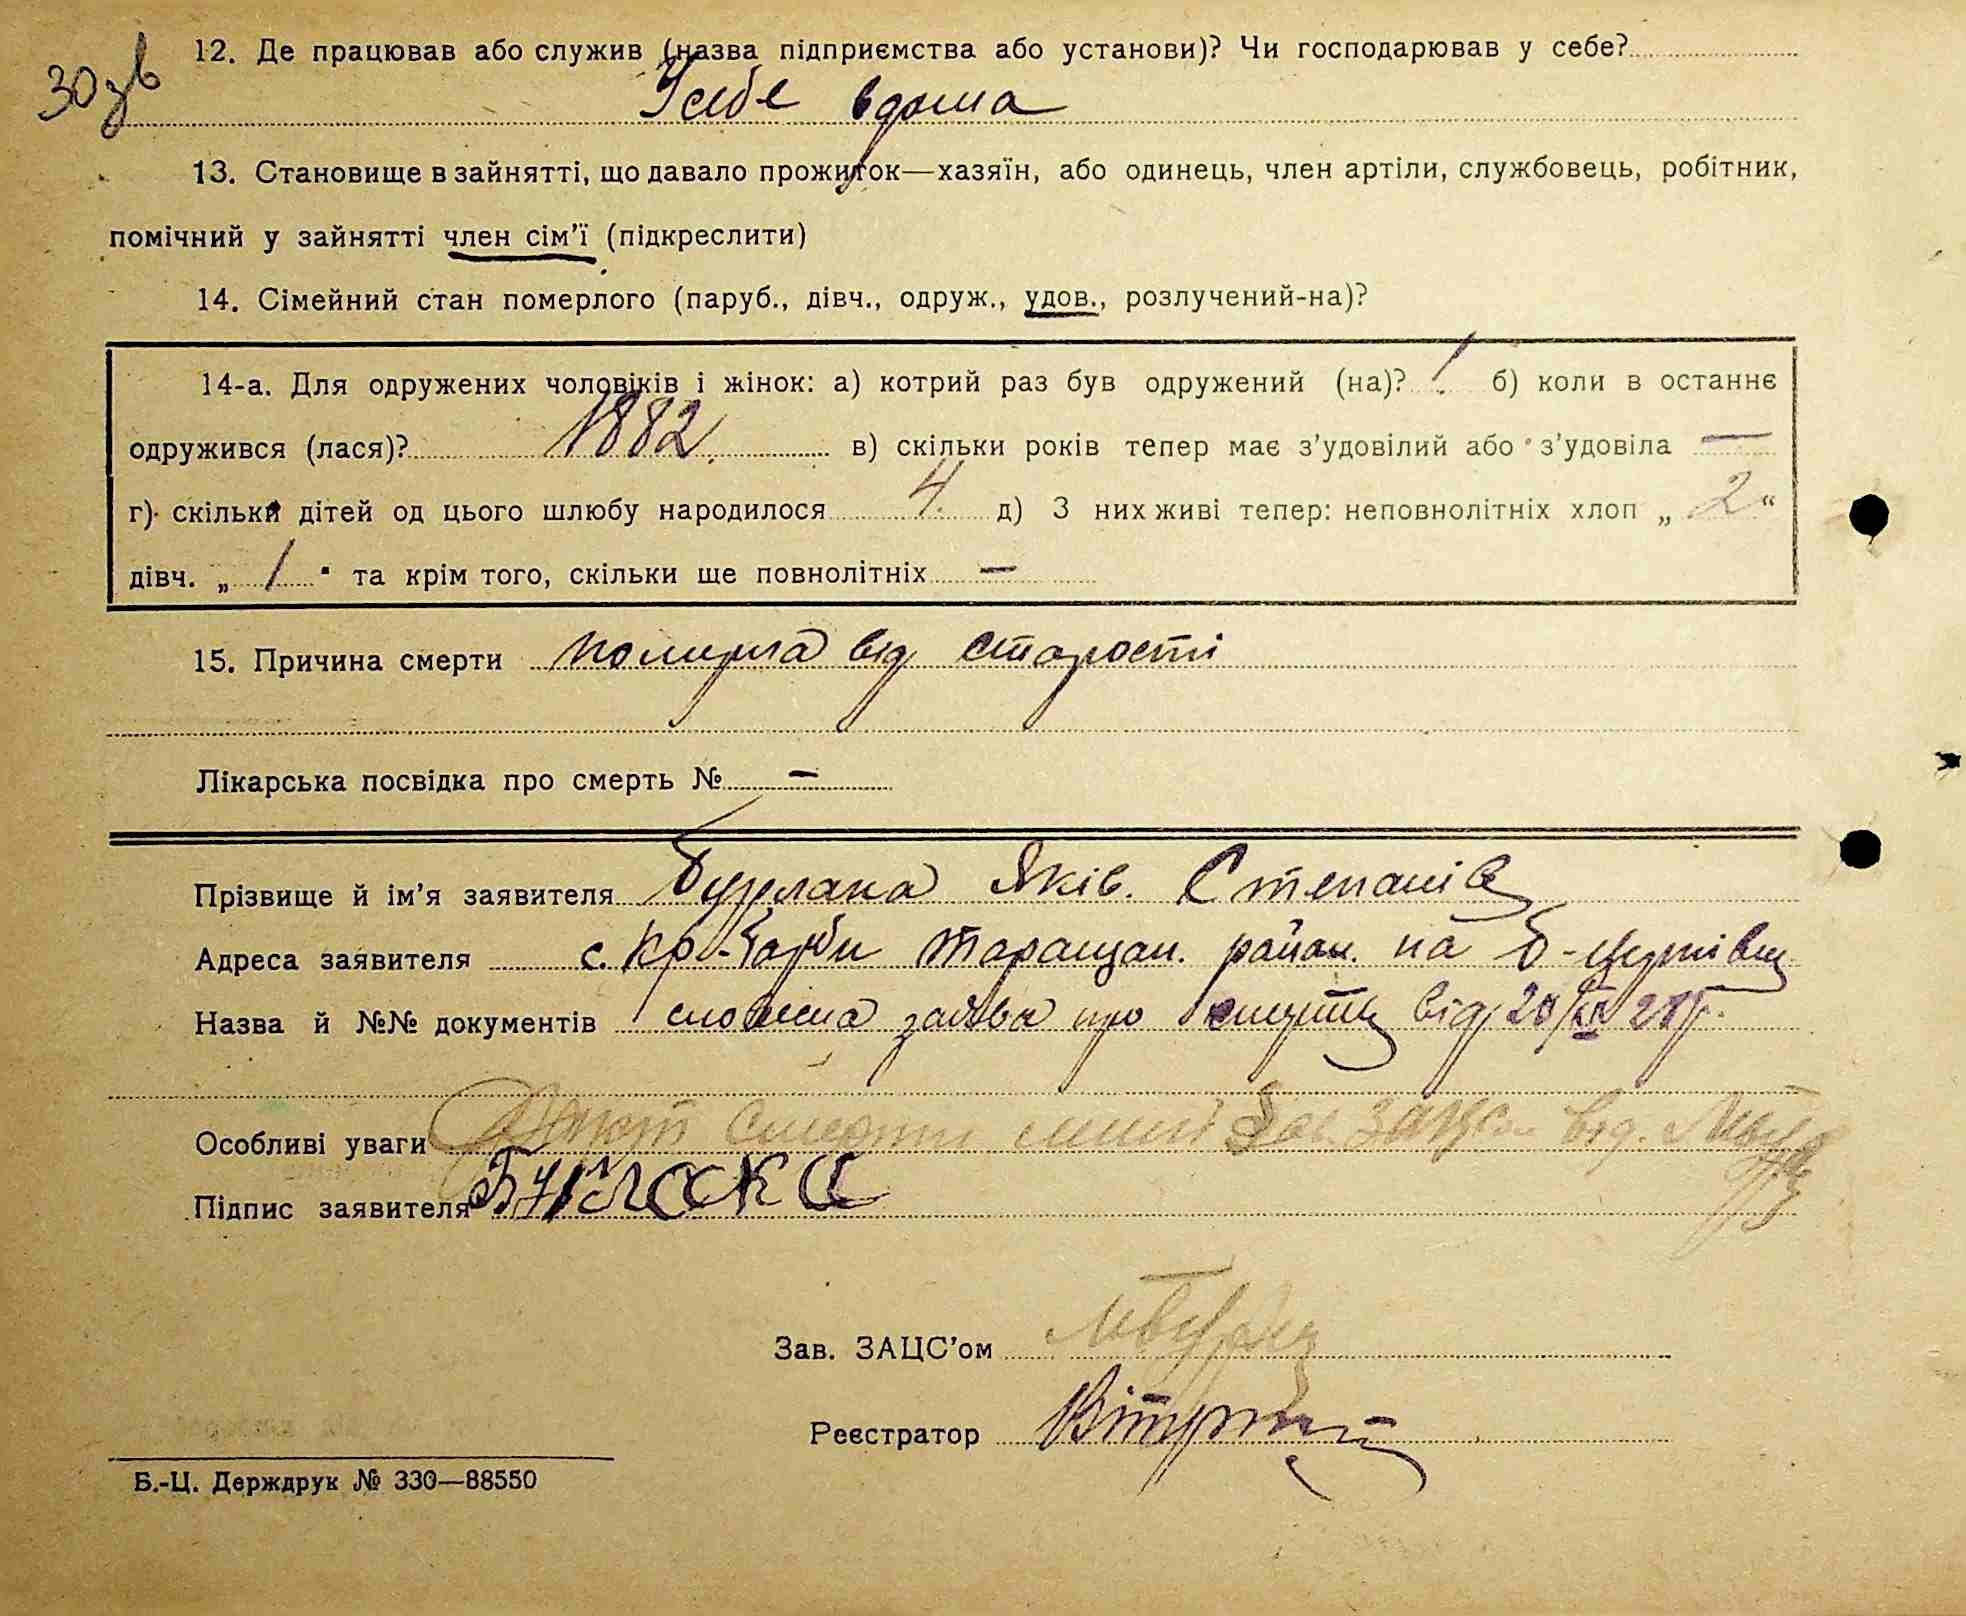 30 зв
12. Де працював або служив (назва підприємства або установи)? Чи господарював у себе?
У себе вдома
13. Становище в зайнятті, що давало прожиток—хазяїн, або одинець, член артіли, службовець, робітник,
помічний у зайнятті член сім'ї (підкреслити)
14. Сімейний стан померлого (паруб., дівч., одруж., удов., розлучений-на)?
14-а. Для одружених чоловіків і жінок: а) котрий раз був одружений (на)? 1 б) коли в останнє
одружився (лася)? 1882. в) скільки років тепер має з'удовілий або з'удовіла —
г) скільки дітей од цього шлюбу народилося 4 д) З них живі тепер: неповнолітніх хлоп „ 2 "
дівч. „ 1 " та крім того, скільки ще повнолітніх —
15. Причина смерти померла від старості
Лікарська посвідка про смерть № —
Прізвище й ім'я заявителя Бурлака Яків. Степанів
Адреса заявителя с. Таращан. район. на Б-Церківщ
Назва й №№ документів словесна заява про смерть від
Особливі уваги смерти ЗАЦСом від.
Підпис заявителя Бурлака
Зав. ЗАЦС'ом
Реєстратор
Б.-Ц. Держдрук № 330—88550